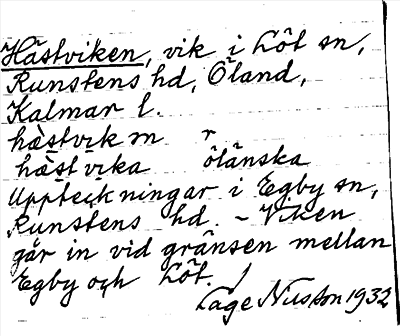 Hästviken, vik i Löt sn,
Runstens hd, Öland,
Kalmar l.
hàstvik m r
hàstvika öländska
Uppteckningar i Egby sn,
Runstens hd. - Viken
går in vid gränsen mellan
Egby och Löt. /
Lage Nilsson 1932